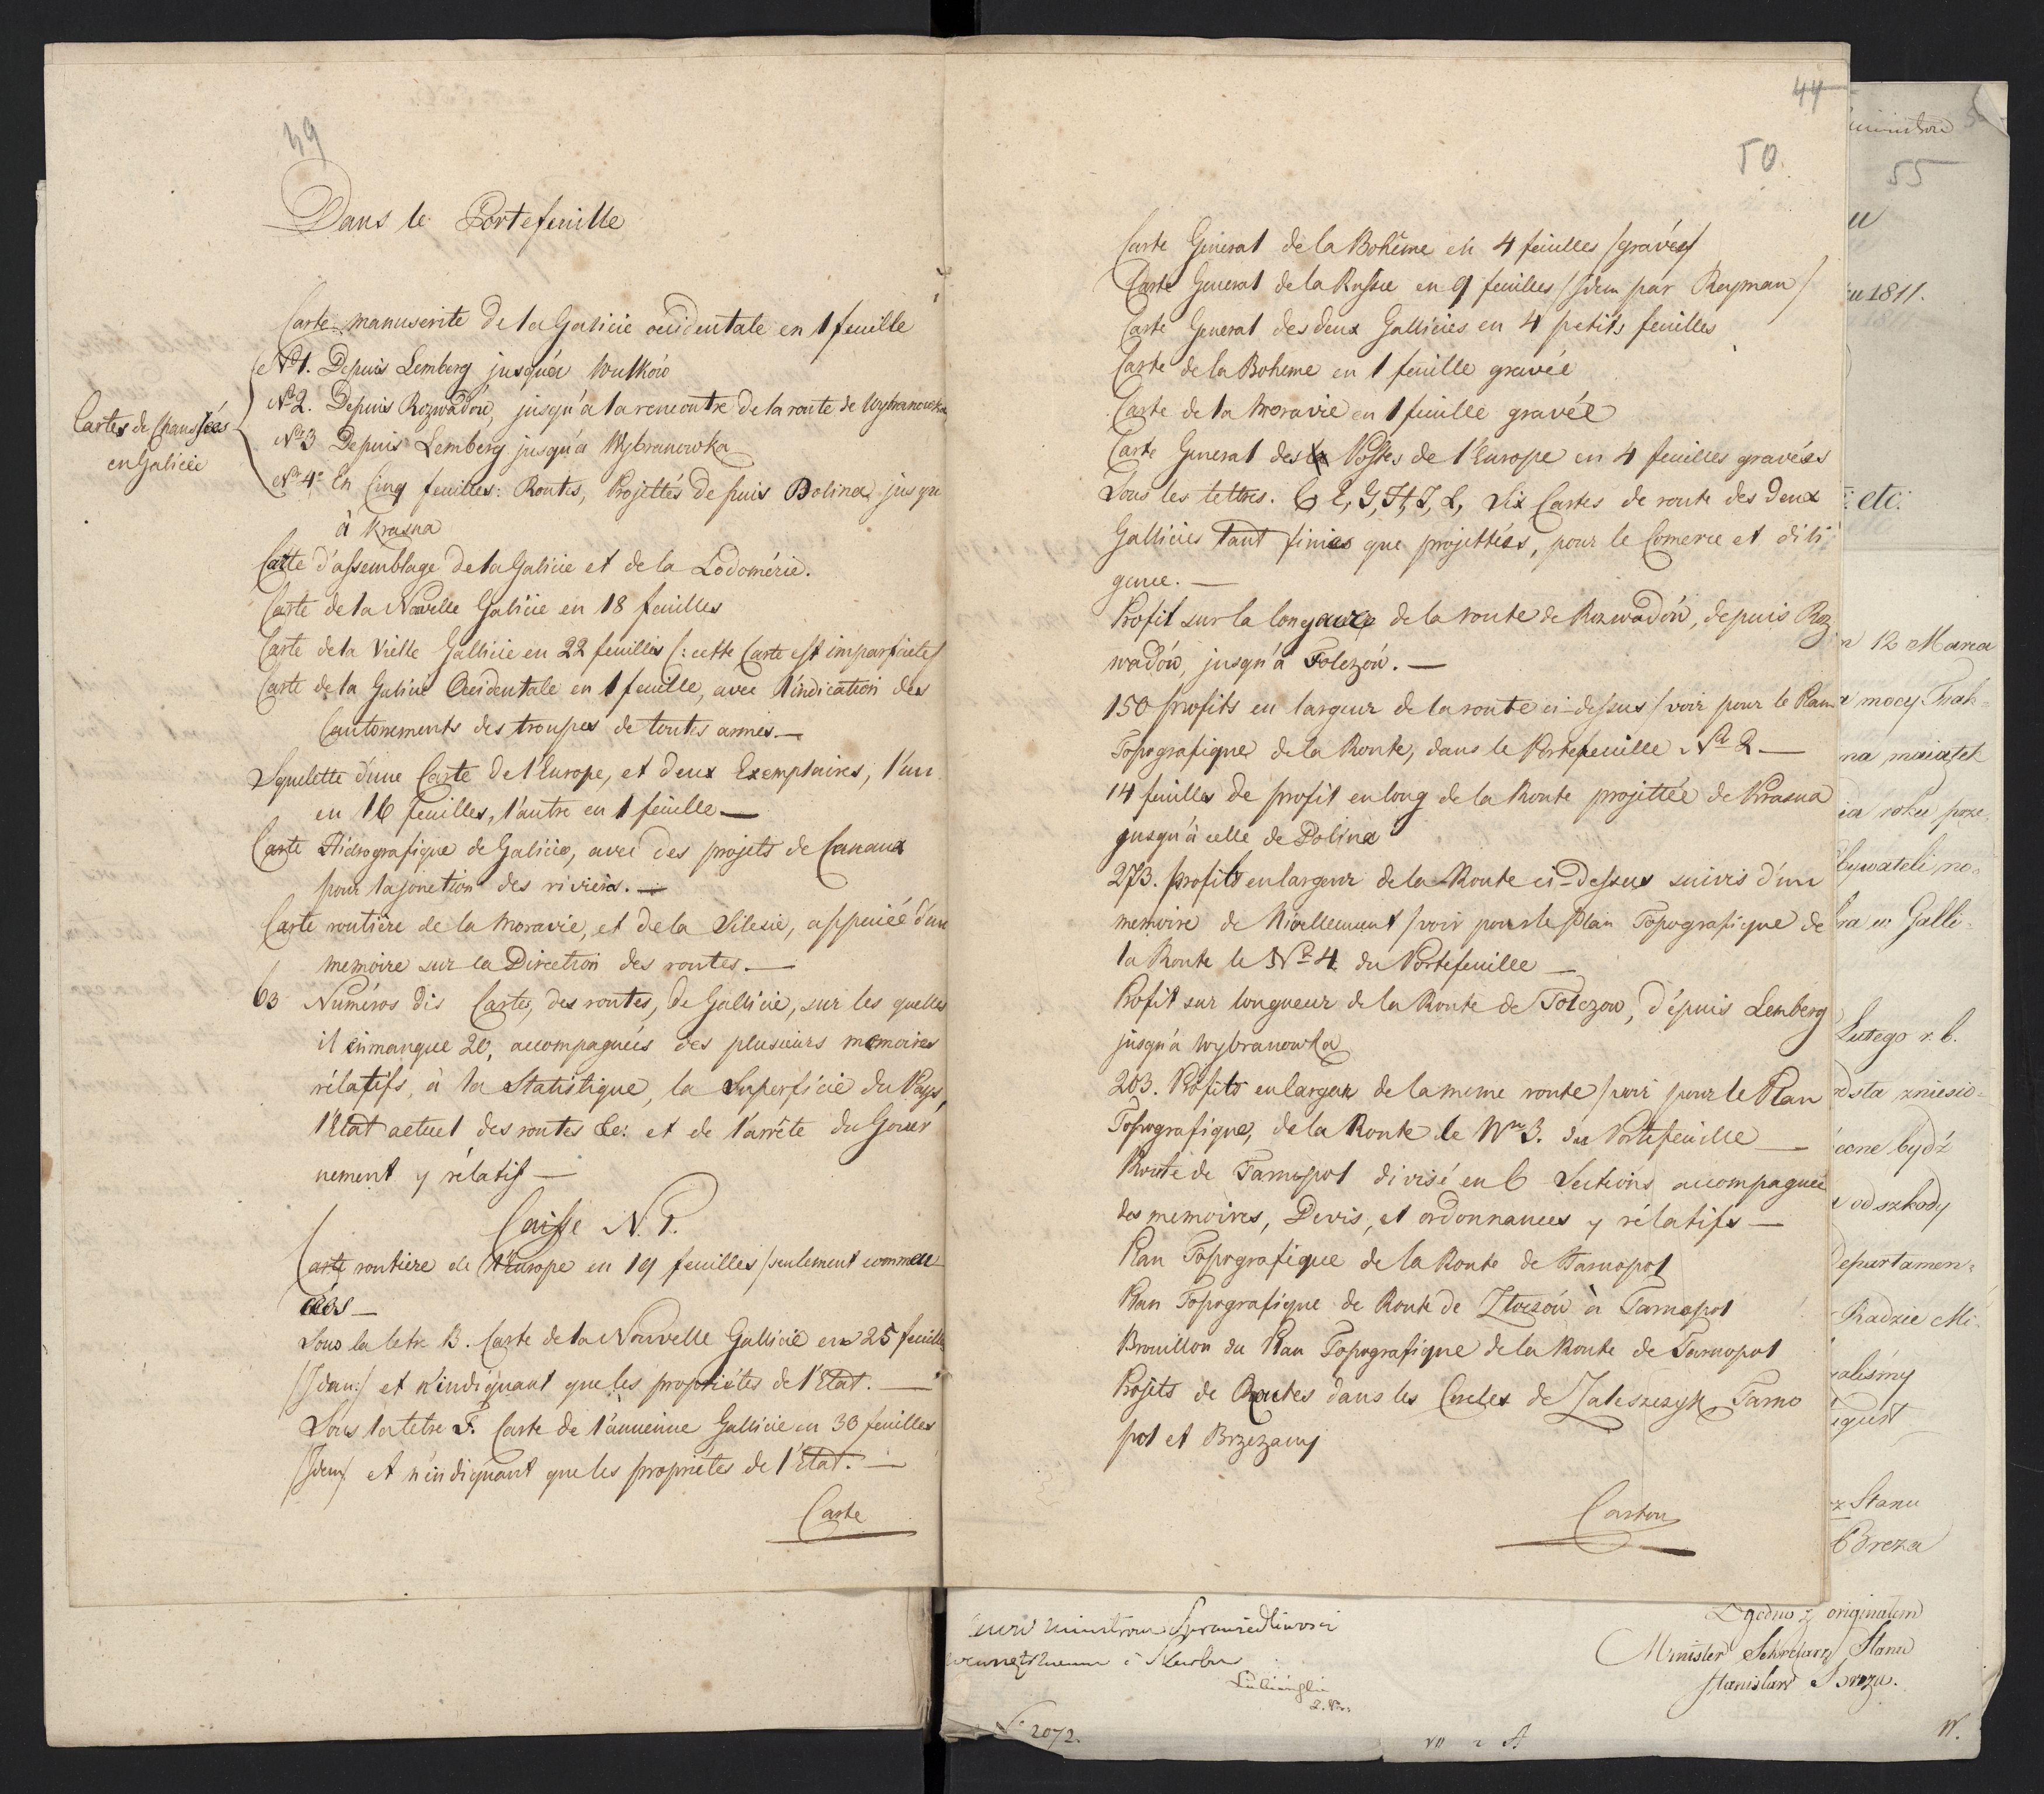 49
Dans le Portefeuille
Carte manuscrite de la Galicie occidentale en 1 feuille
Cartes de Chaussées
en Galicie
Nº1. Depuis Lemberg jusqu'à Wulków
Nº2. Depuis Rozwadów, jusqu'a la rencontre de la route de Wybranowka
Nº3 Depuis Lemberg jusqu'a Wybranowka
Nº 4º En Cinq feuilles: Routes, Projettés depuis Dolina jusqu
à Krasna
Carte d'assemblage de la Galicie et de la Lodomérie.
Carte de la Nouvelle Galicie en 18 feuilles
Carte de la Vielle Gallicie en 22 feuilles (: cette Carte est imparfaite/
Carte de la Galicie Occidentale en 1 feuille, avec l'indication des
Cantonements des troupes de toutes armes. —
Squelette d'une Carte de l'Europe, et deux Exemplaires, l'un
en 16 feuilles, l'autre en 1 feuille —
Carte Hidrografique de Galicie, avec des projets de Canaux
pour la jonction des riviers. —
Carte routière de la Moravie, et de la Silesie, appuiée d'un
memoire sur la Direction des routes. —
63 Numéros dis Cartes, des routes, de Gallicie, sur les quelles
il enmanque 20, accompagnées des plusieurs memoires
rélatifs, à la Statistique, la Superficie du Pays,
l'Etat actuel des routes &c: et de l'arrête du Gouver
nement y rélatif —
Caisse N. 1.
Carte routiere de l'Europe en 19 feuilles /seulement commen
cées —
Sous la letre B. Carte de la Nouvelle Gallicie en 25 feuilles
/Idem/ et n'indiquant que les propriétes de l'Etat. —
Sous la letre F. Carte de l'ancienne Gallicie en 30 feuilles
/Idem/ et n'indiquant que les propriétes de l'Etat. —
Carte
44
50.
Carte General de la Bohême en 4 feuilles /gravées/
Carte General de la Russie en 9 feuilles /Idem par Reyman/
Carte General des deux Gallicies en 4 petits feuilles
Carte de la Boheme en 1 feuille gravée
Carte de la Moravie en 1 feuille gravée
Carte General des Postes de l'Europe en 4 feuilles gravées
Sous les lettres. C, E, G, H, I, L, Six Cartes de route des deux
Gallicies tant finies que projettées, pour le Comerce et dili
gence. —
Profil sur la longueur de la route de Rozwadów, depuis Roz
wadów, jusqu'à Tolczów. —
150 profils en largeur de la route ci-dessus /voir pour le Plan
Topografique de la Route, dans le Portefeuille Nº 2 —
14 feuilles de profil en long de la Route projettée de Krasna
jusqu'à celle de Dolina
273. profils en largeur de la Route ci-dessus suivis d'un
memoire de Nivellement /voir pour le Plan Topografique de
la Route le Nº 4. du Portefeuille —
Profil sur longueur de la Route de Tolczow, dépuis Lemberg
jusqu'à Wybranowka
203. Profils en largeur de la meme route /voir pour le Plan
Topografique, de la Route le Nº 3. du Portefeuille —
Route de Tarnopol divisé en 6 Sections accompagnée
des memoires, Devis, et ordonnances y rélatifs —
Plan Topografique de la Route de Tarnopol
Plan Topografique de Route de Zloczów à Tarnopol
Brouillon du Plan Topografique de la Route de Tarnopol
Projets de Routes dans les Cercles de Zaleszczyk, Tarno
pol et Brzezany
Carton
55
1811.
etc:
12 Marca
mocy Trak-
na maiątek
roku prze
bywateli no-
ra w Galli-
Lutego r. b.
zniesio-
cone bydź
od szkody
Departamen-
Radzie Mi-
aliśmy
Stanu
Breza
Zgodno z originałem
Minister Sekretarz Stanu
Stanisław Breza.
2072.